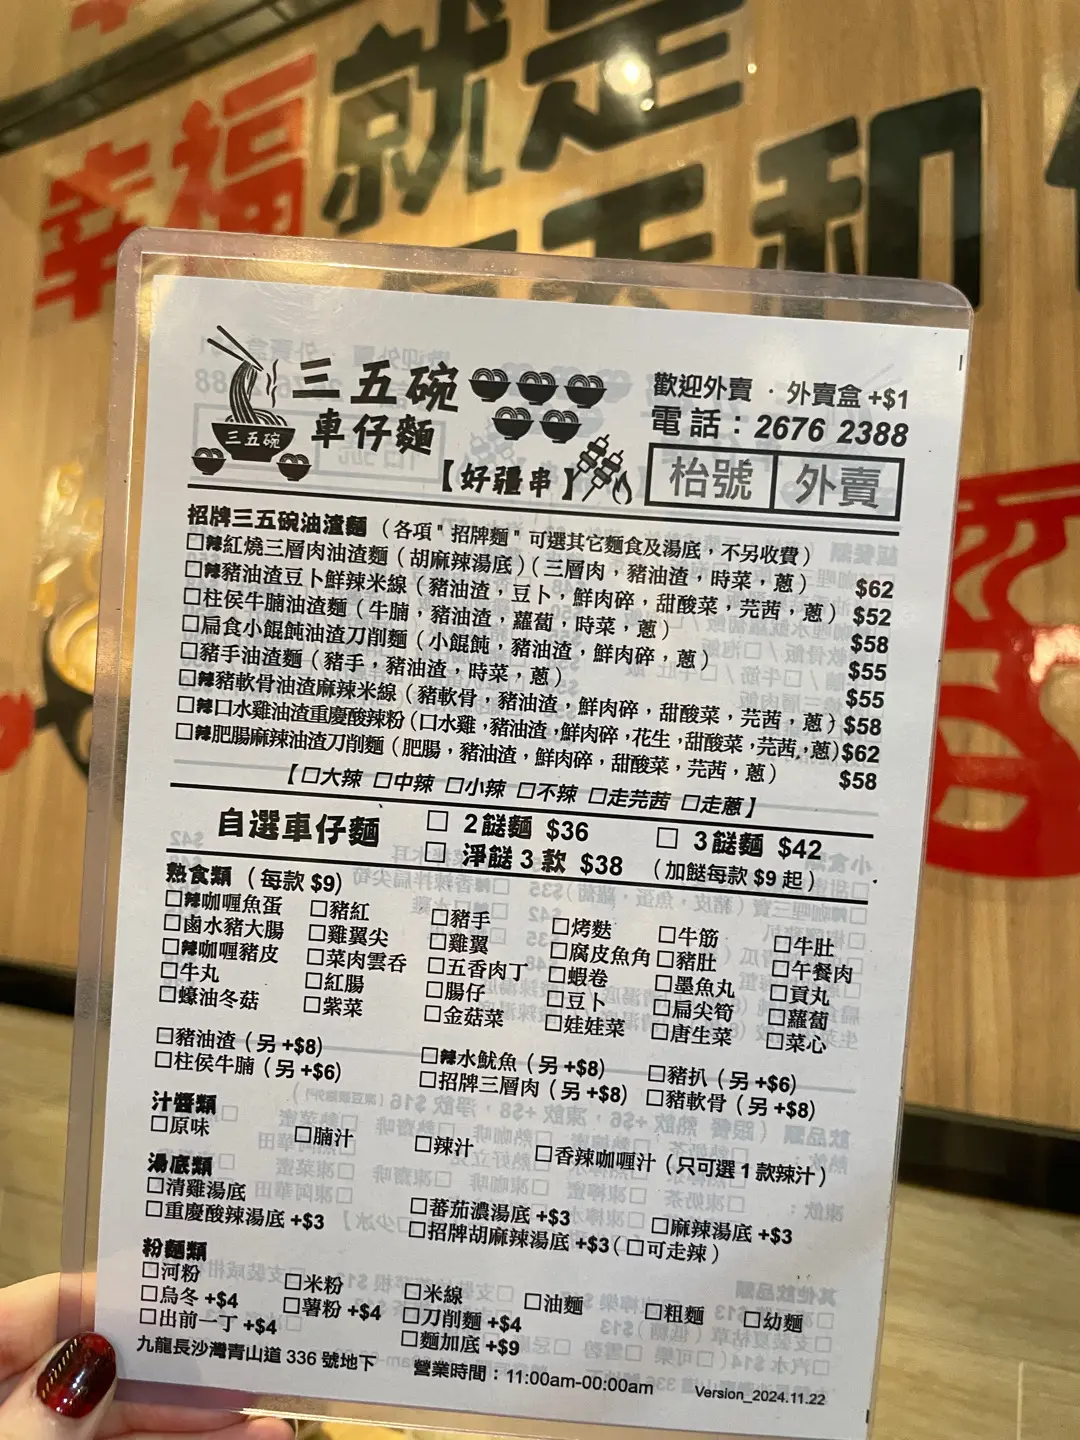 幸福就是
和
三五碗
車仔麵
三五碗
【好疆串】
歡迎外賣 · 外賣盒 +$1
電話：2676 2388
枱號 外賣
招牌三五碗油渣麵（各項"招牌麵"可選其它麵食及湯底，不另收費）
□辣紅燒三層肉油渣麵（胡麻辣湯底）（三層肉，豬油渣，時菜，蔥） $62
□辣豬油渣豆卜鮮辣米線（豬油渣，豆卜，鮮肉碎，甜酸菜，芫茜，蔥） $52
□柱侯牛腩油渣麵（牛腩，豬油渣，蘿蔔，時菜，蔥） $58
□扁食小餛飩油渣刀削麵（小餛飩，豬油渣，鮮肉碎，蔥） $55
□豬手油渣麵（豬手，豬油渣，時菜，蔥） $55
□辣豬軟骨油渣麻辣米線（豬軟骨，豬油渣，鮮肉碎，甜酸菜，芫茜，蔥） $58
□辣口水雞油渣重慶酸辣粉（口水雞，豬油渣，鮮肉碎，花生，甜酸菜，芫茜，蔥） $62
□辣肥腸麻辣油渣刀削麵（肥腸，豬油渣，鮮肉碎，甜酸菜，芫茜，蔥） $58
【□大辣 □中辣 □小辣 □不辣 □走芫茜 □走蔥】
自選車仔麵 □ 2餸麵 $36 □ 3餸麵 $42
□ 淨餸3款 $38 （加餸每款 $9 起）
熟食類（每款 $9）
□辣咖喱魚蛋 □豬紅 □豬手 □烤麩 □牛筋 □牛肚
□鹵水豬大腸 □雞翼尖 □雞翼 □腐皮魚角 □豬肚 □午餐肉
□辣咖喱豬皮 □菜肉雲吞 □五香肉丁 □蝦卷 □墨魚丸 □貢丸
□牛丸 □紅腸 □腸仔 □豆卜 □扁尖筍 □蘿蔔
□蠔油冬菇 □紫菜 □金菇菜 □娃娃菜 □唐生菜 □菜心
□豬油渣（另 +$8） □辣水魷魚（另 +$8） □豬扒（另 +$6）
□柱侯牛腩（另 +$6） □招牌三層肉（另 +$8） □豬軟骨（另 +$8）
汁醬類
□原味 □腩汁 □辣汁 □香辣咖喱汁（只可選 1 款辣汁）
湯底類
□清雞湯底 □蕃茄濃湯底 +$3 □麻辣湯底 +$3
□重慶酸辣湯底 +$3 □招牌胡麻辣湯底 +$3（□可走辣）
粉麵類
□河粉 □米粉 □米線 □油麵 □粗麵 □幼麵
□烏冬 +$4 □薯粉 +$4 □刀削麵 +$4
□出前一丁 +$4 □麵加底 +$9
九龍長沙灣青山道 336 號地下 營業時間：11:00am-00:00am Version_2024.11.22